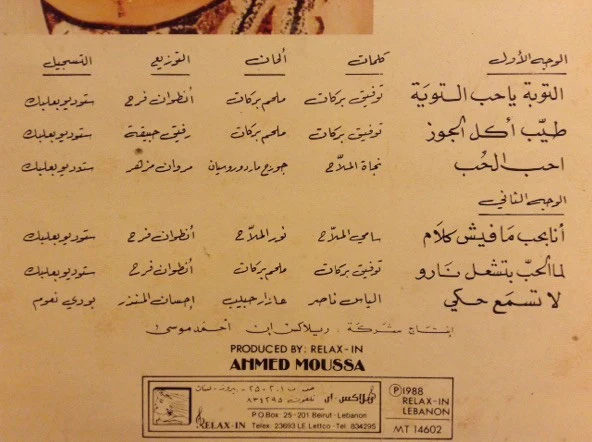 الوجه الأول كلمات ألحان التوزيع التسجيل
التوبة يا حب التوبة توفيق بركات ملحم بركات أنطوان فرح ستوديو بعلبك
طيّب أكل الجوز توفيق بركات ملحم بركات رفيق حبيقة ستوديو بعلبك
احب الحُب نجاة الملاّح جورج ماردوروسيان مروان مزهر ستوديو بعلبك
الوجه الثاني
أنا بحب مَافيش كلام سامي الملاّح نور الملاّح أنطوان فرح ستوديو بعلبك
لما الحبّ بتشعل نارو توفيق بركات ملحم بركات أنطوان فرح ستوديو بعلبك
لا تسمَع حكي الياس ناصر عازار حبيب إحسان المنذر بودي نعوم
إنتاج شركة : ريلاكس إن أحمد موسى
PRODUCED BY: RELAX-IN
AHMED MOUSSA
ص.ب ٢٠١-٢٥ بيروت - لبنان
ريلاكس - إن تلفون ٨٣٤٢٩٥
P.O.Box 25-201 Beirut-Lebanon
RELAX-IN Telex 23693 LE Lettco-Tel 834295
Ⓟ1988
RELAX-IN
LEBANON
MT 14602